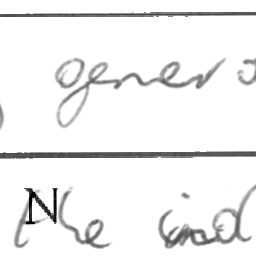 gener
N
the ind